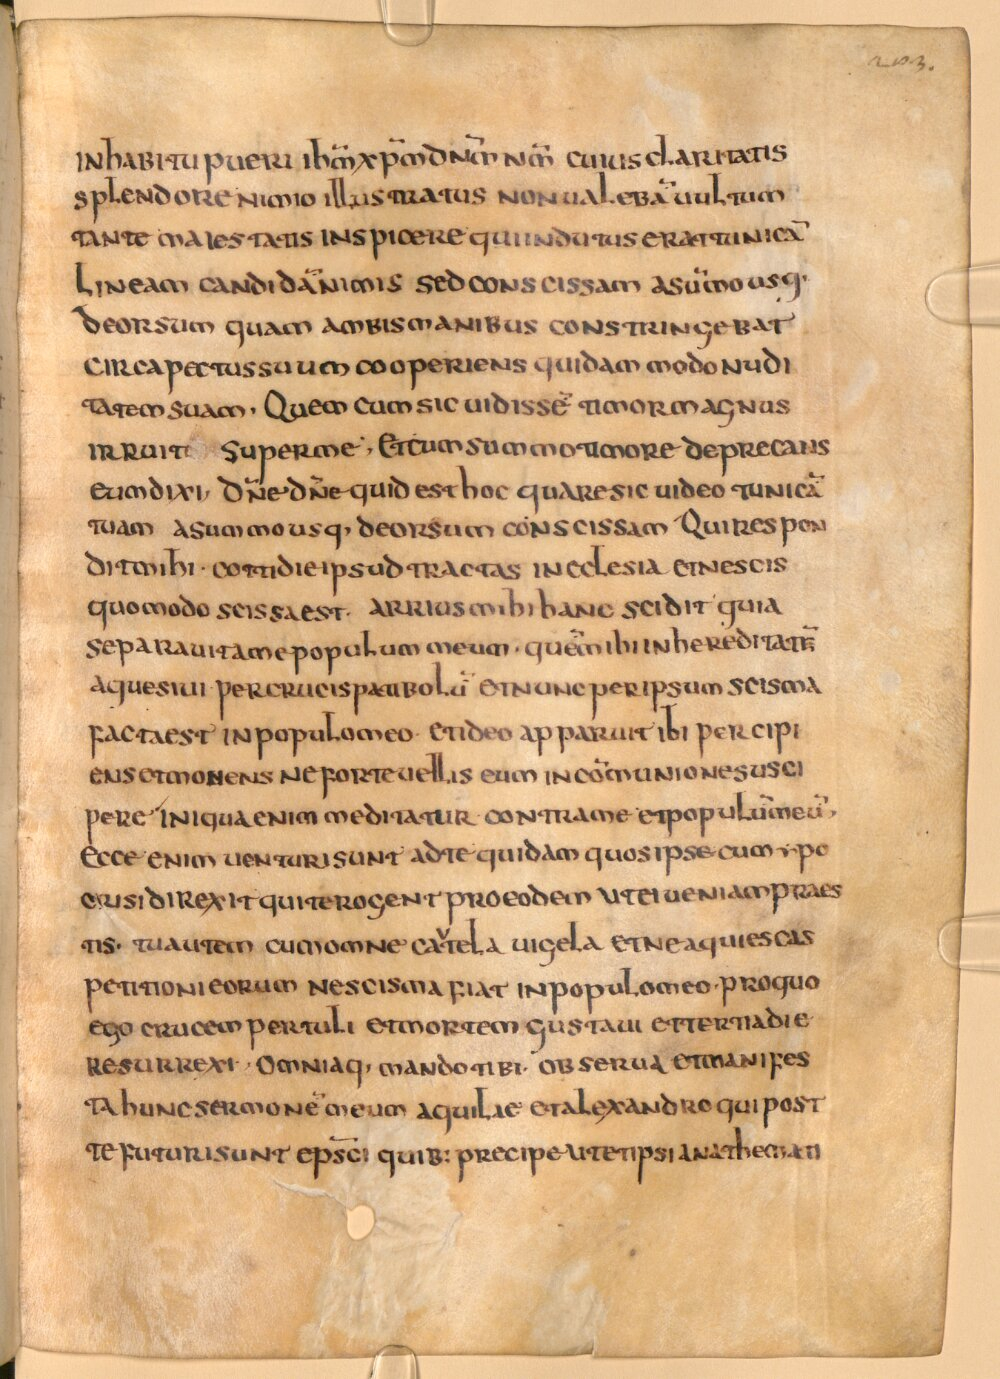 203.
inhabitu pueri ihm̄ xp̄m dnm̄ nm̄ cuius claritatis
splendore nimio illustratus non ualebā uultum
tante maiestatis inspicere qui indutus erat tunicā
Lineam candidā nimis sed conscissam asūmo usq·
deorsum quam ambis manibus constringebat
circa pectus suum cooperiens quidammodo nudi
tatem suam· Quem cum sic uidissē timor magnus
irruit super me·, Et cum summo timore deprecans
eum dixi, dn̄e dn̄e quid est hoc quare sic uideo tunicā
tuam asummo usq, deorsum conscissam Qui respon
dit mihi· cottidie ipsud tractas in eclesia et nescis
quomodo scissa est· arrius mihi hanc scidit quia
separauit ame populum meum· quē mihi in hereditatē
aquesiui per crucis patibolū et nunc per ipsum scisma
facta est in populo meo et ideo apparuit ibi percipi
ens et monens ne forte uellis eum in cōmunione susci
pere iniqua enim meditatur contra me et populūmeū,
Ecce enim uenturi sunt ad te quidam quos ipse cum ypo
crisi direxit qui te rogent pro eodem ut ei ueniam praes
tis· tu autem cum omne catela uigela et ne aquiescas
petitioni eorum ne scisma fiat in populo meo· pro quo
ego crucem pertuli et mortem gustaui et tertia die
resurrexi· Omniaq, mando tibi· obserua et manifes
ta hunc sermonē meum aquilae et alexandro qui post
te futuri sunt epsc̄i quib: precipe ut et ipsi anathemati